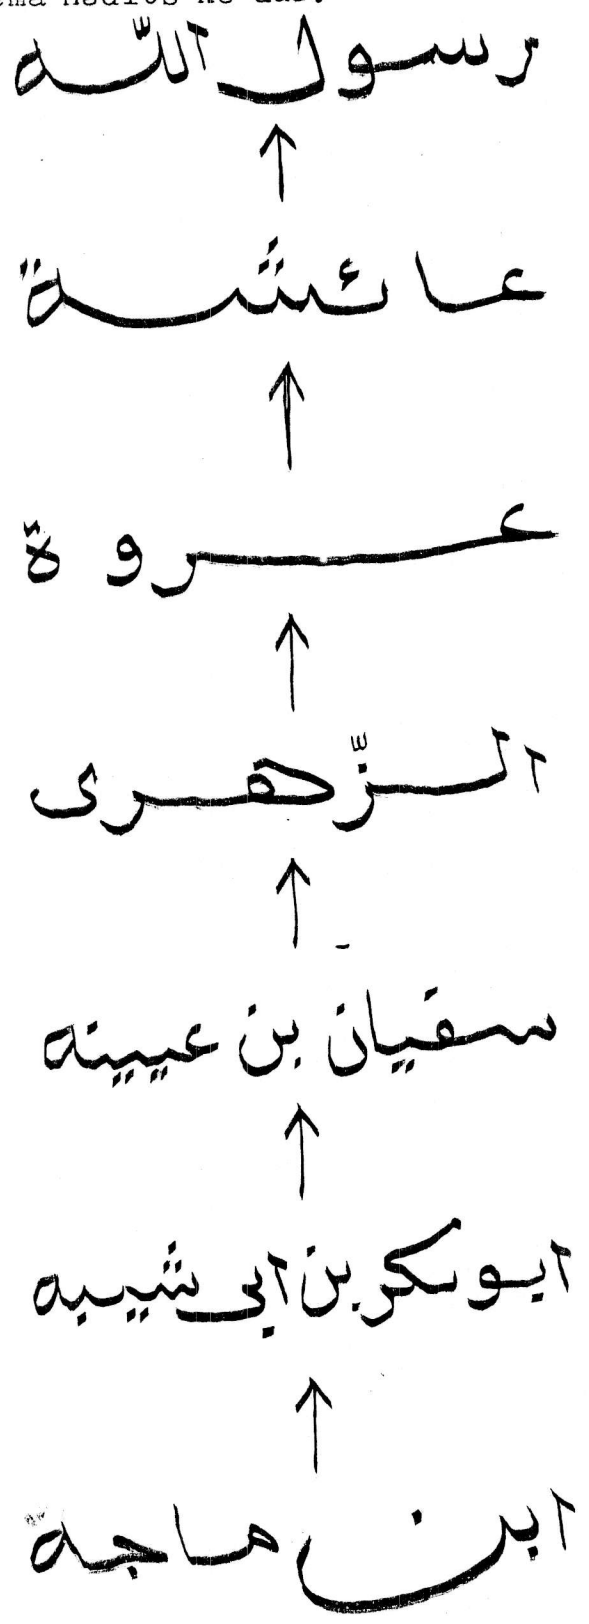 رسول الله
عائشة
عروة
الزّهرى
سفيان بن عيينه
ابو بكر بن ابى شيبه
ابن ماجة